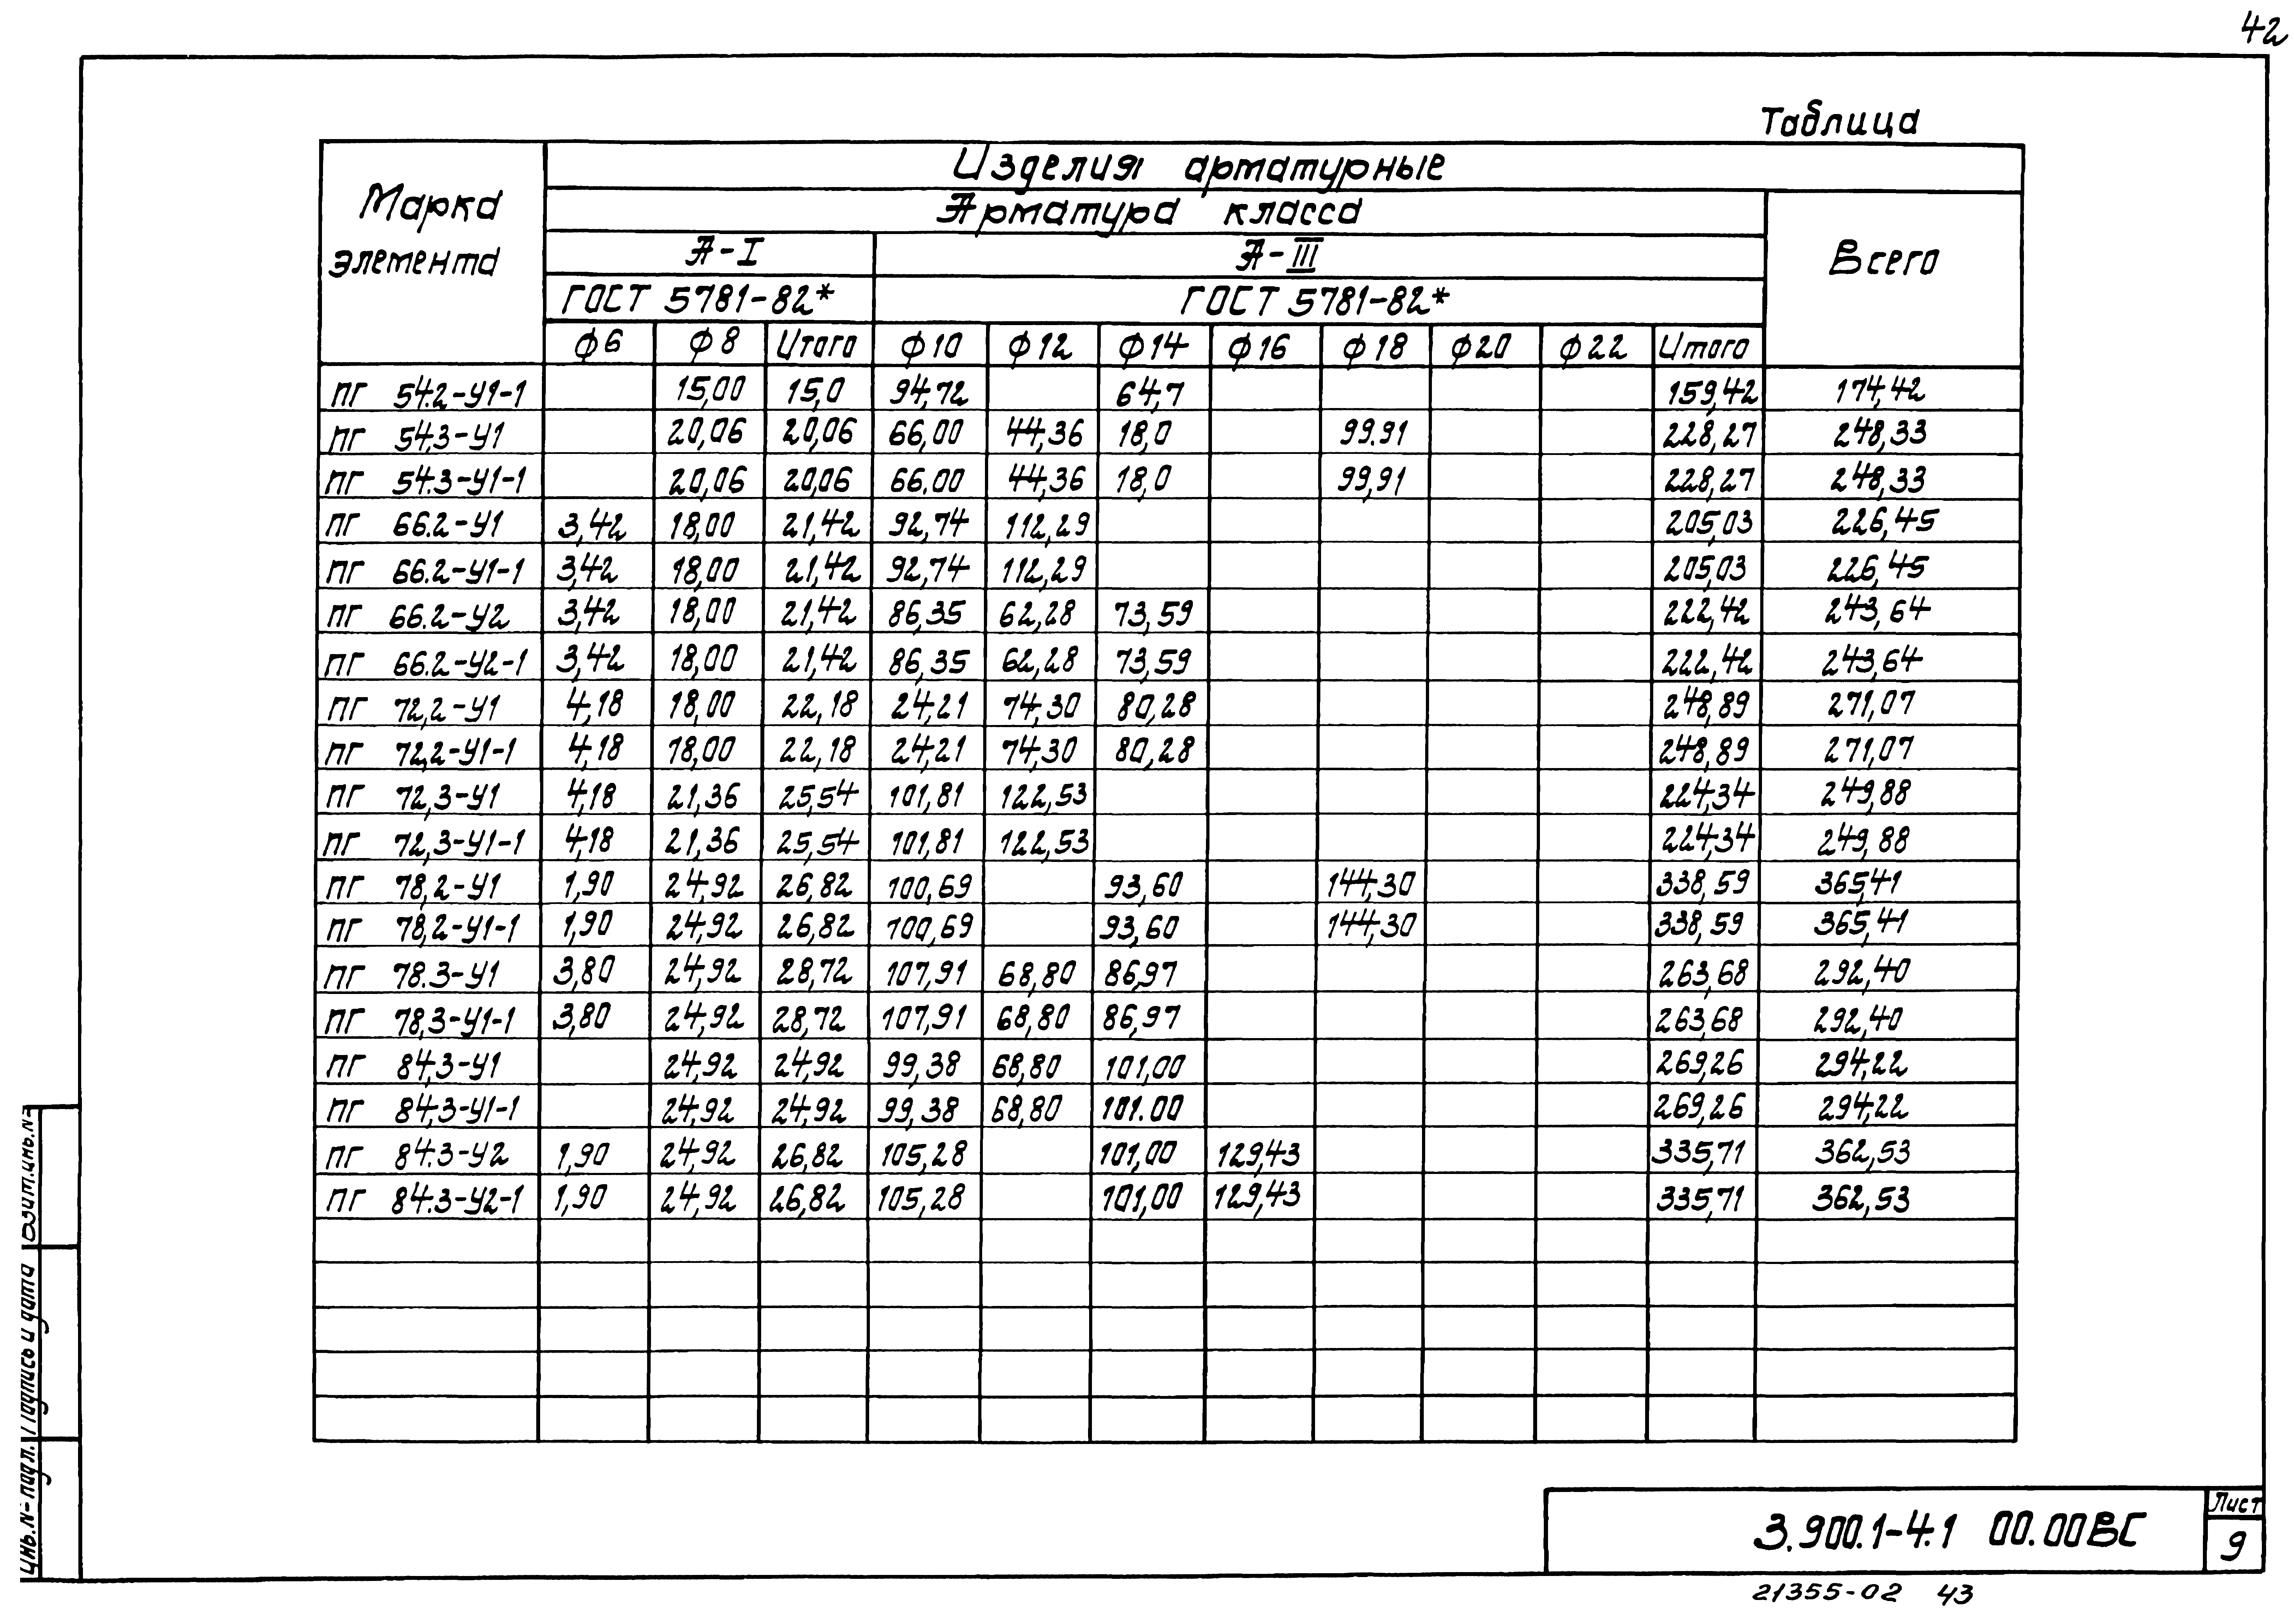 42
Таблица
Марка элемента
Изделия арматурные
Арматура класса
Всего
А-I
А-III
ГОСТ 5781-82*
ГОСТ 5781-82*
Ф6 Ф8 Итого Ф10 Ф12 Ф14 Ф16 Ф18 Ф20 Ф22 Итого
ПГ 54.2-У1-1 15,00 15,0 94,72 64,7 159,42 174,42
ПГ 54.3-У1 20,06 20,06 66,00 44,36 18,0 99.91 228,27 248,33
ПГ 54.3-У1-1 20,06 20,06 66.00 44,36 18,0 99,91 228,27 248,33
ПГ 66.2-У1 3,42 18,00 21,42 92,74 112,29 205,03 226,45
ПГ 66.2-У1-1 3,42 18,00 21,42 92,74 112,29 205,03 226,45
ПГ 66.2-У2 3,42 18,00 21,42 86,35 62,28 73,59 222,42 243,64
ПГ 66.2-У2-1 3,42 18,00 21,42 86,35 62,28 73,59 222,42 243,64
ПГ 72,2-У1 4,18 18,00 22,18 24,21 74,30 80,28 248,89 271,07
ПГ 72,2-У1-1 4,18 18,00 22,18 24,21 74,30 80,28 248,89 271,07
ПГ 72,3-У1 4,18 21,36 25,54 101,81 122,53 224,34 249,88
ПГ 72,3-У1-1 4,18 21,36 25,54 101,81 122,53 224,34 249,88
ПГ 78,2-У1 1,90 24,92 26,82 100,69 93,60 144,30 338,59 365,41
ПГ 78,2-У1-1 1,90 24,92 26,82 100,69 93,60 144,30 338,59 365,41
ПГ 78.3-У1 3,80 24,92 28,72 107,91 68,80 86,97 263,68 292,40
ПГ 78,3-У1-1 3,80 24,92 28,72 107,91 68,80 86,97 263,68 292,40
ПГ 84,3-У1 24,92 24,92 99,38 68,80 101,00 269,26 294,22
ПГ 84,3-У1-1 24,92 24,92 99,38 68,80 101.00 269,26 294,22
ПГ 84.3-У2 1,90 24,92 26,82 105,28 101,00 129,43 335,71 362,53
ПГ 84.3-У2-1 1,90 24,92 26,82 105,28 101,00 129,43 335,71 362,53
Взам.инв.№
Подпись и дата
Инв.№ подл.
3.900.1-4.1 00.00ВС
Лист
9
21355-02 43